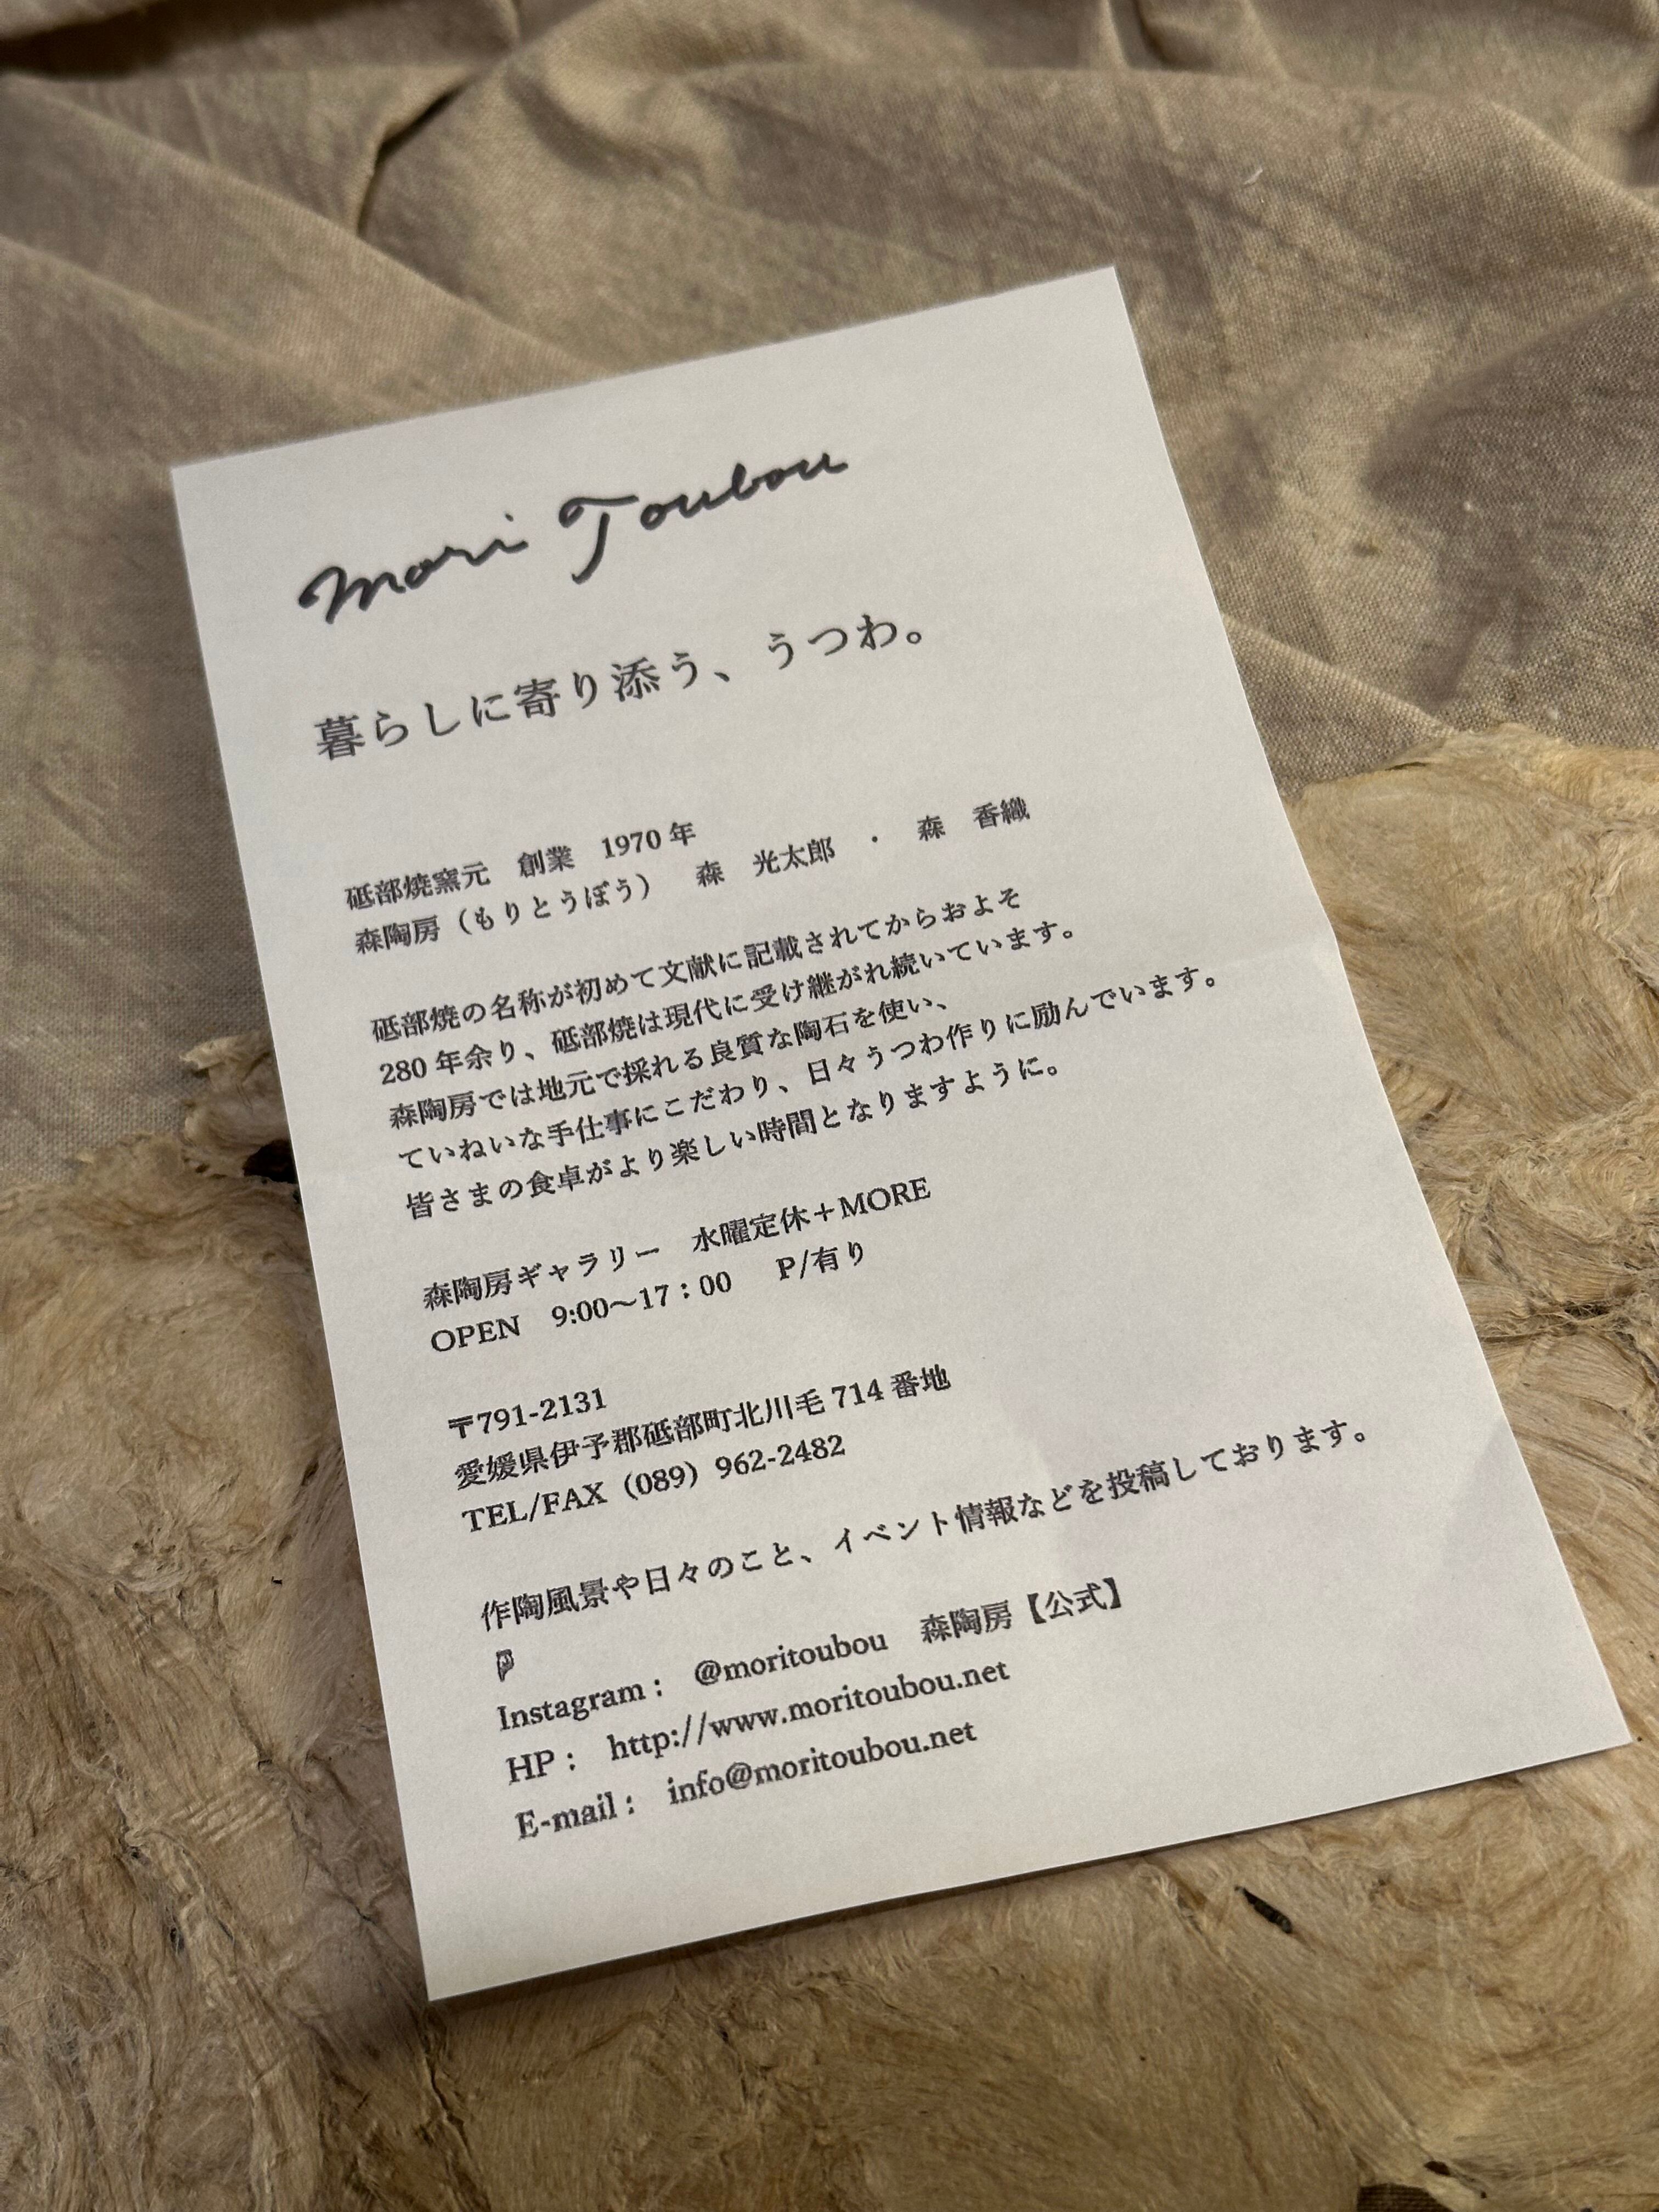 mori Toubou
暮らしに寄り添う、うつわ。
砥部焼窯元　創業　1970年
森陶房（もりとうぼう）　森　光太郎　・　森　香織
砥部焼の名称が初めて文献に記載されてからおよそ
280年余り、砥部焼は現代に受け継がれ続いています。
森陶房では地元で採れる良質な陶石を使い、
ていねいな手仕事にこだわり、日々うつわ作りに励んでいます。
皆さまの食卓がより楽しい時間となりますように。
森陶房ギャラリー　水曜定休＋MORE
OPEN　9:00〜17：00　P/有り
〒791-2131
愛媛県伊予郡砥部町北川毛714番地
TEL/FAX（089）962-2482
作陶風景や日々のこと、イベント情報などを投稿しております。
Instagram：　@moritoubou　森陶房【公式】
HP：　http://www.moritoubou.net
E-mail：　info@moritoubou.net